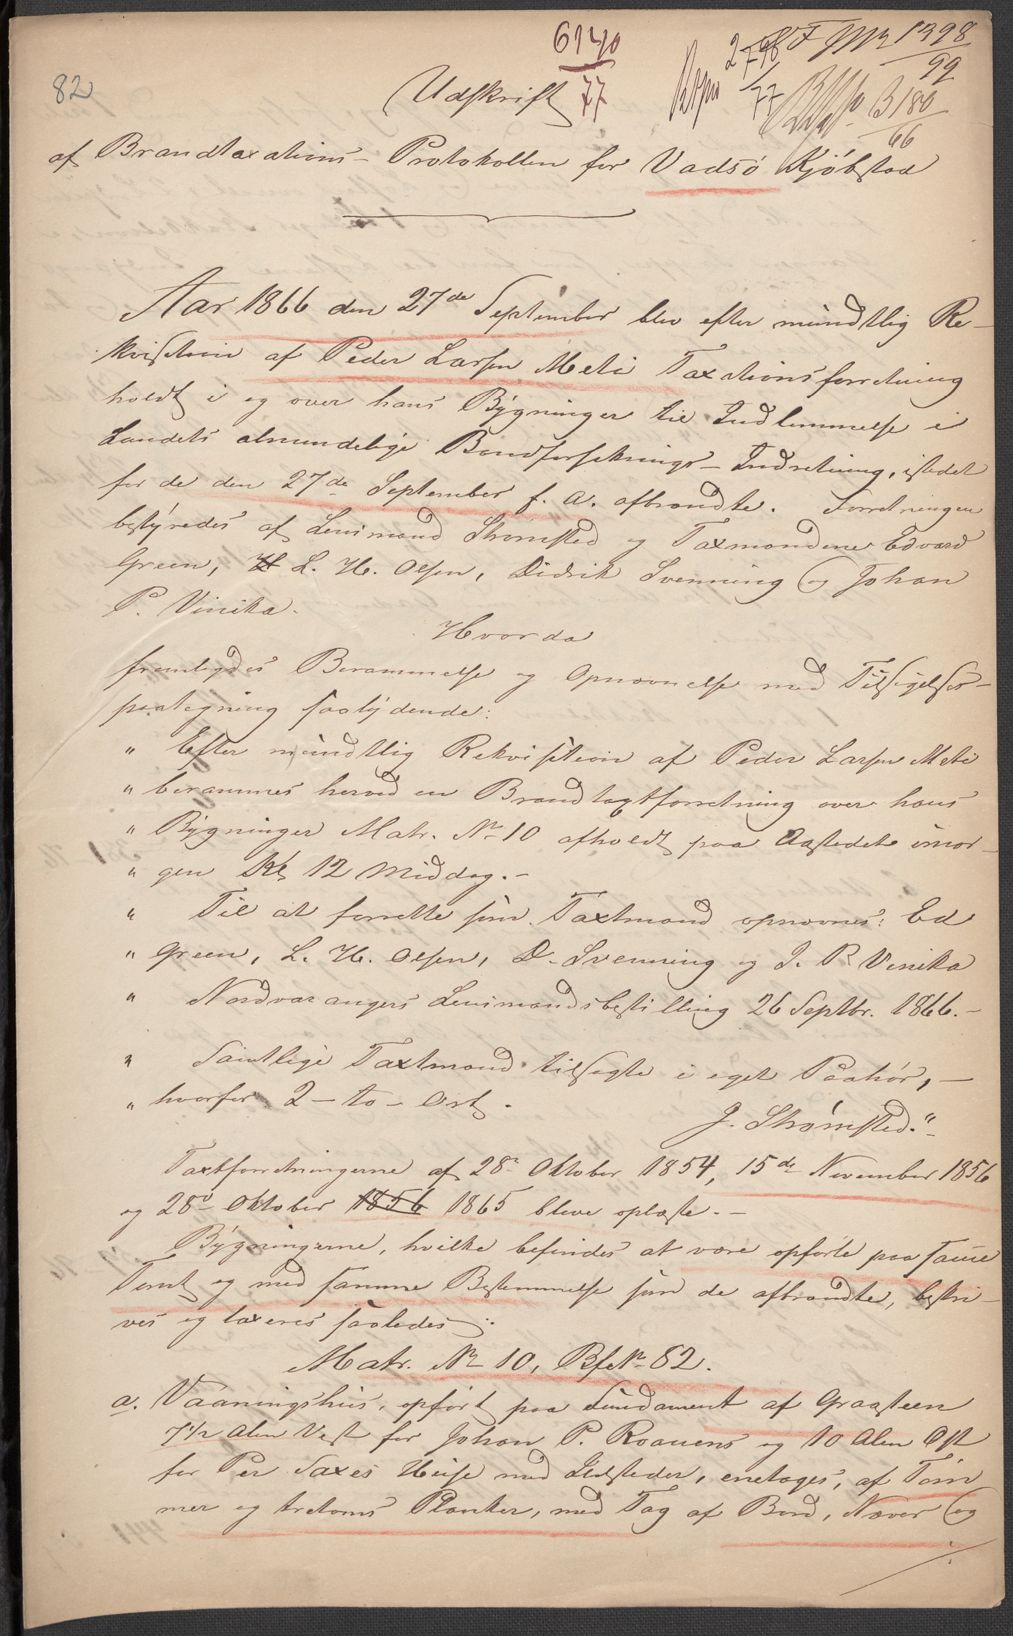 82
6140
77
2798
77
J№ 1398
99
B 180
66
Udskrift
af Brandtaxations-Protokollen for Vadsö Kjöbstad
Aar 1866 den 27de September blev efter mündtlig Re-
kvisition af Peder Larsen Meti Taxationsforretning
holdt i og over hans Bygninger til Indlemmelse i
Landets almindelige Brandforsikrings-Indretning, istedet
for de den 27de September f. A. afbrændte. Forretningen
bestyredes af Lensmand Strömsted og Taxmændene Edvard
Green, L. H. Olsen, Didrik Svenning og Johan
P. Vinika.
Hvorda
fremlagdes Berammelse og Opnævnelse med Tilsigelses-
paategning saalydende:
" Efter mündtlig Rekvisition af Peder Larsen Meti
" berammes herved en Brandtaxtforretning over hans
" Bygninger Matr. № 10 afholdt paa Aastedet imor-
" gen Kl 12 Middag.-
" Til at forrette som Taxtmænd opnævnes: Ed
" Green, L. H. Olsen, D. Svenning og J. P. Vinika
" Nordvarangers Lensmandsbestilling 26 Septbr. 1866.-
" Samtlige Taxtmænd tilsagte i eget Paahör, -
" hvorfor 2 - to - Ort.
J. Strömsted."-
Taxtforretningerne af 28de Oktober 1854, 15de November 1856
og 28de Oktober 1856 1865 bleve oplæste. -
Bygningerne, hvilke befindes at være opförte paa samme
Tomt og med samme Bestemmelse som de afbrændte, beskri-
ves og taxeres saaledes:
Matr. № 10, Bf № 82.
a. Vaaningshus, opfört paa Fundament af Graasteen
7 1/2 Alen Vest for Johan P. Roavens og 10 Alen Öst
for Per Saxes Huse med Ildsteder, enetages, af Töm
mer og tretoms Planker, med Tag af Bord, Næver og